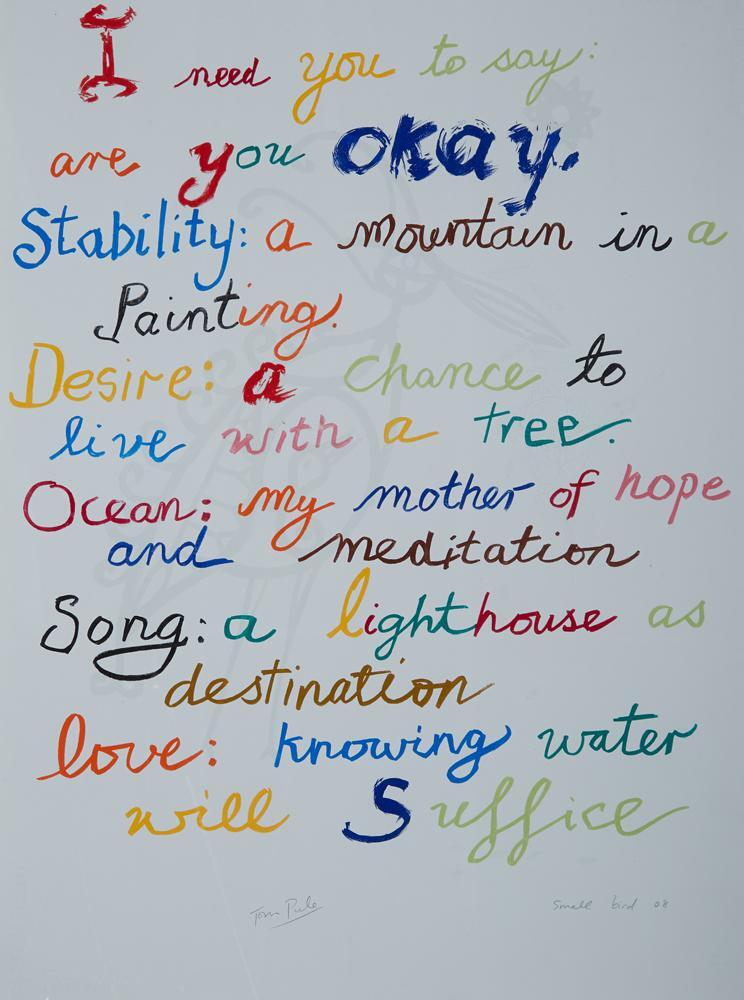 I need you to say:
are you okay.
Stability: a mountain in a
Painting.
Desire: a chance to
live with a tree.
Ocean: my mother of hope
and meditation
Song: a lighthouse as
destination
love: knowing water
will Suffice
Tom Pule small bird 08